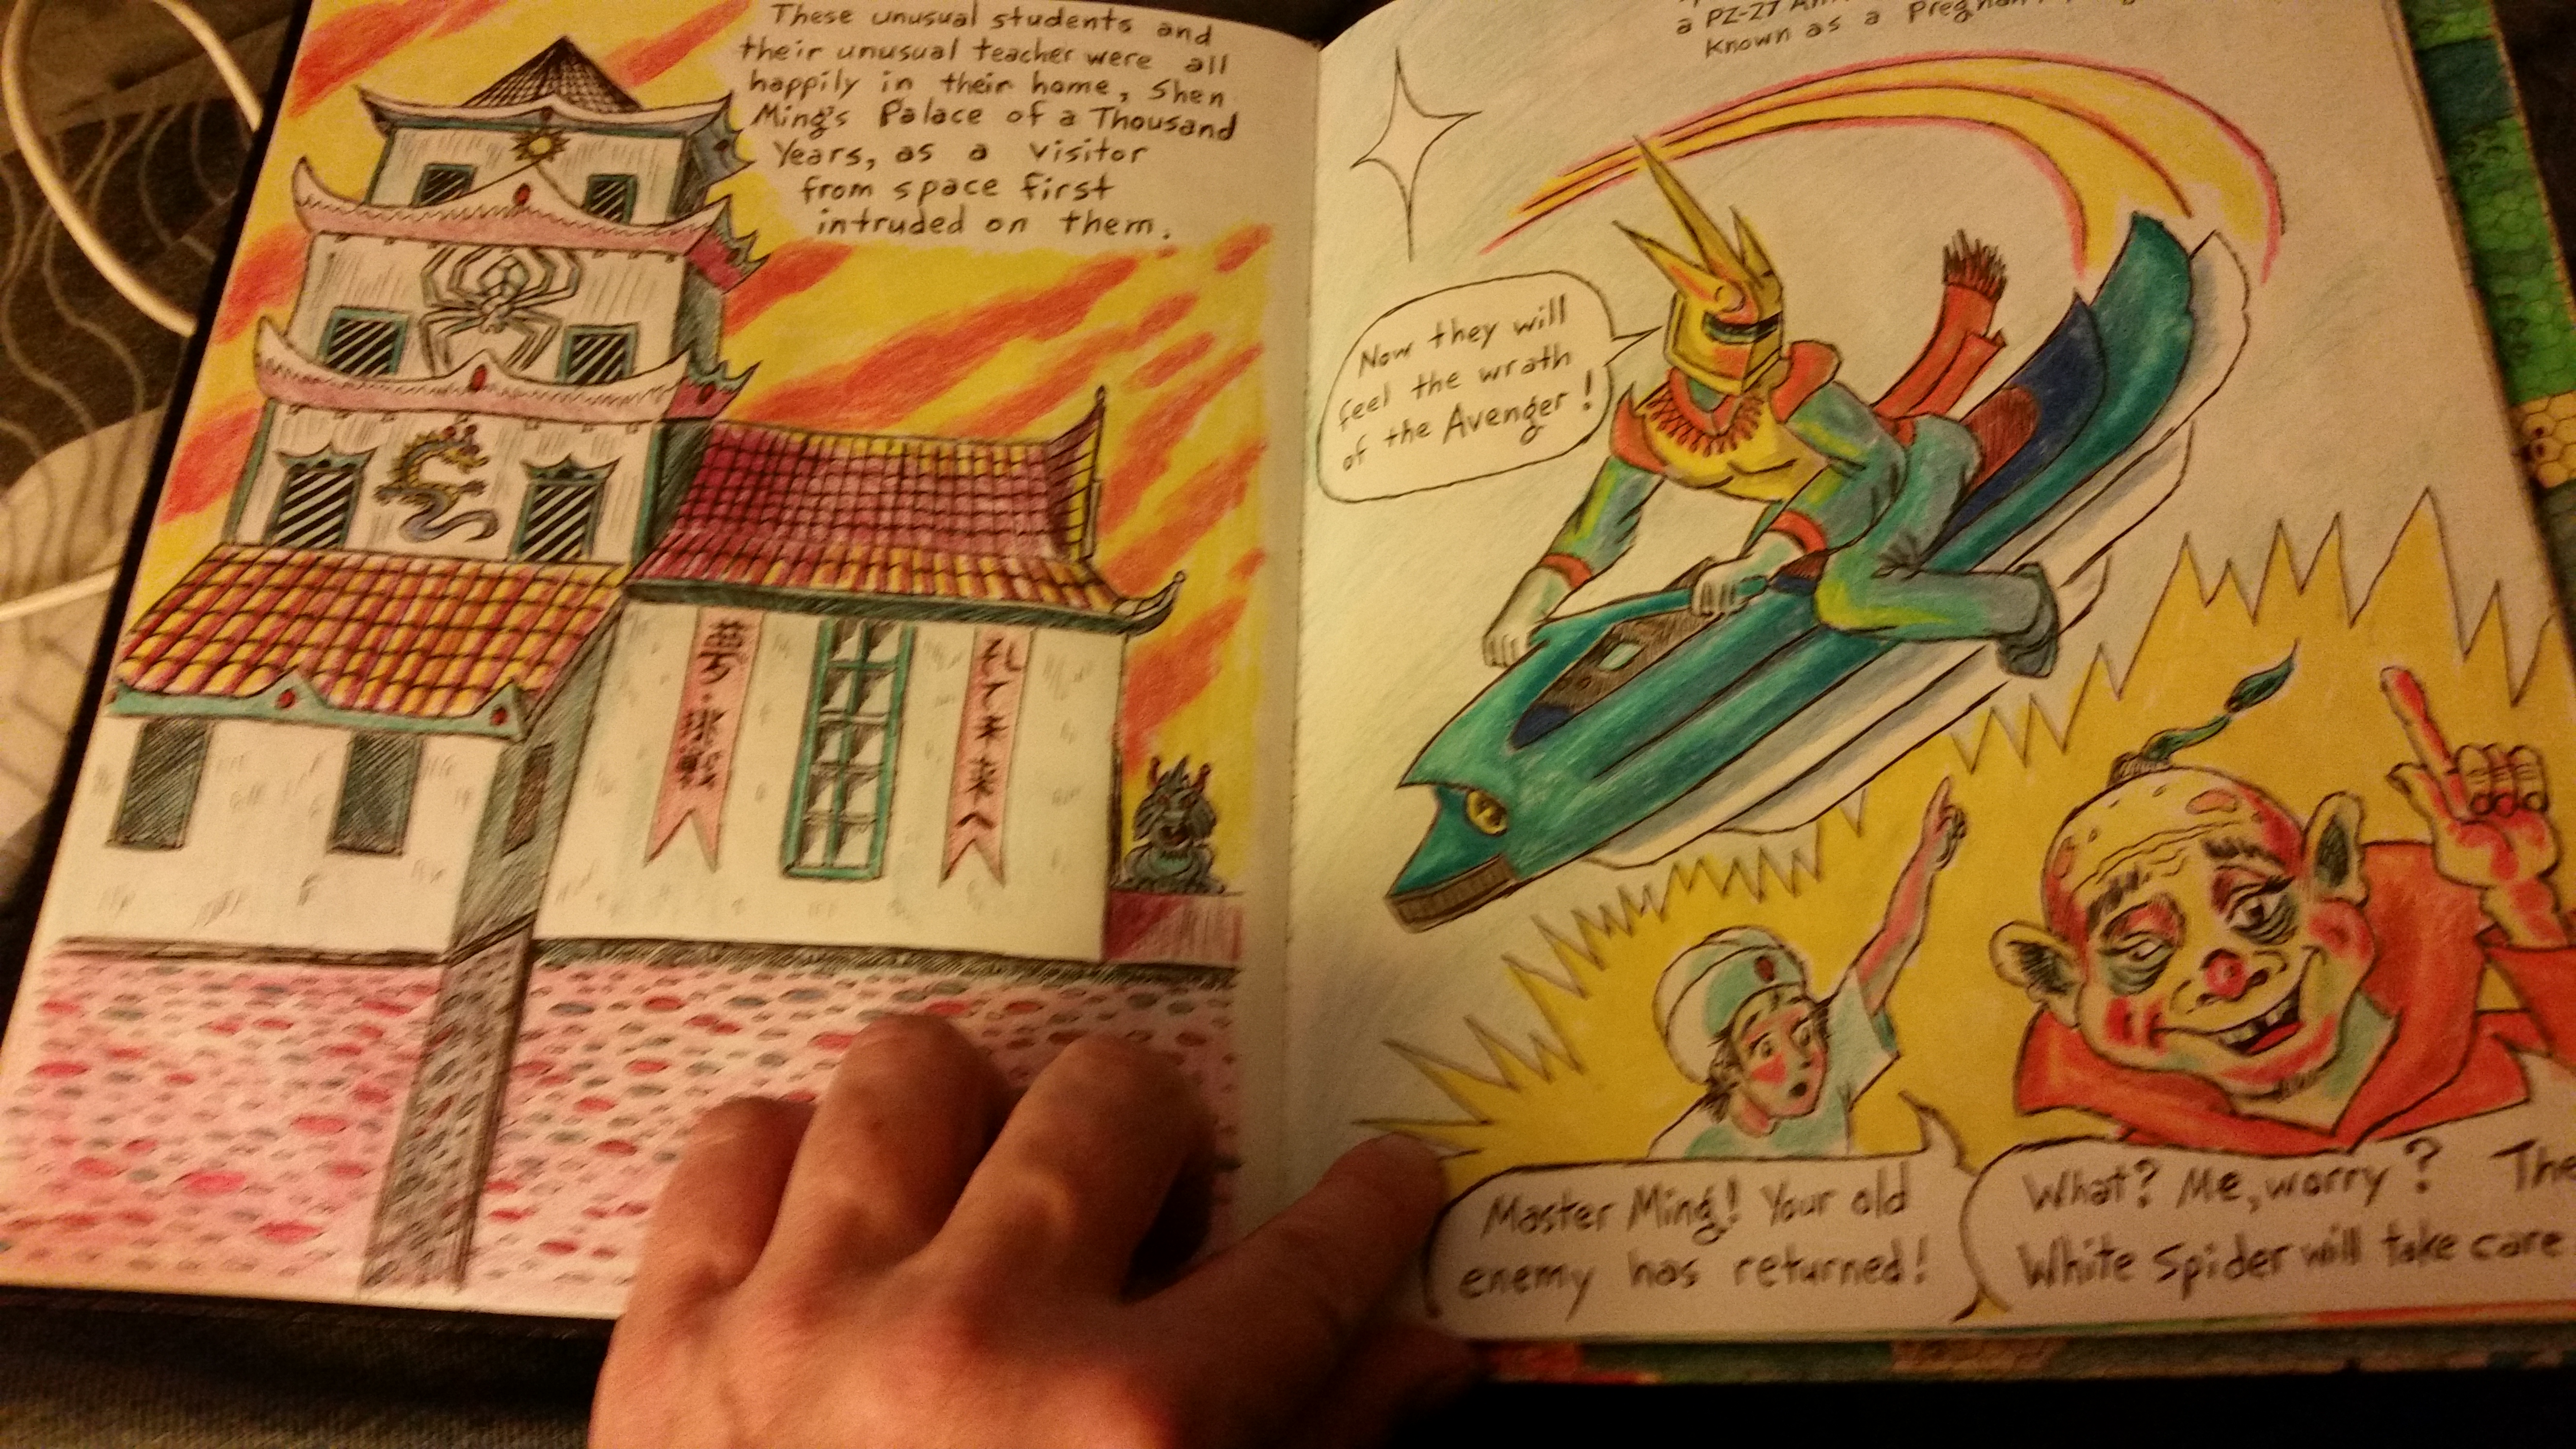 These unusual students and
their unusual teacher were all
happily in their home, Shen
Ming's Palace of a Thousand
Years, as a visitor
from space first
intruded on them.
a PZ-27
Known as a
Now they will
feel the wrath
of the Avenger!
Master Ming! Your old
enemy has returned!
What? Me, worry? The
White Spider will take care